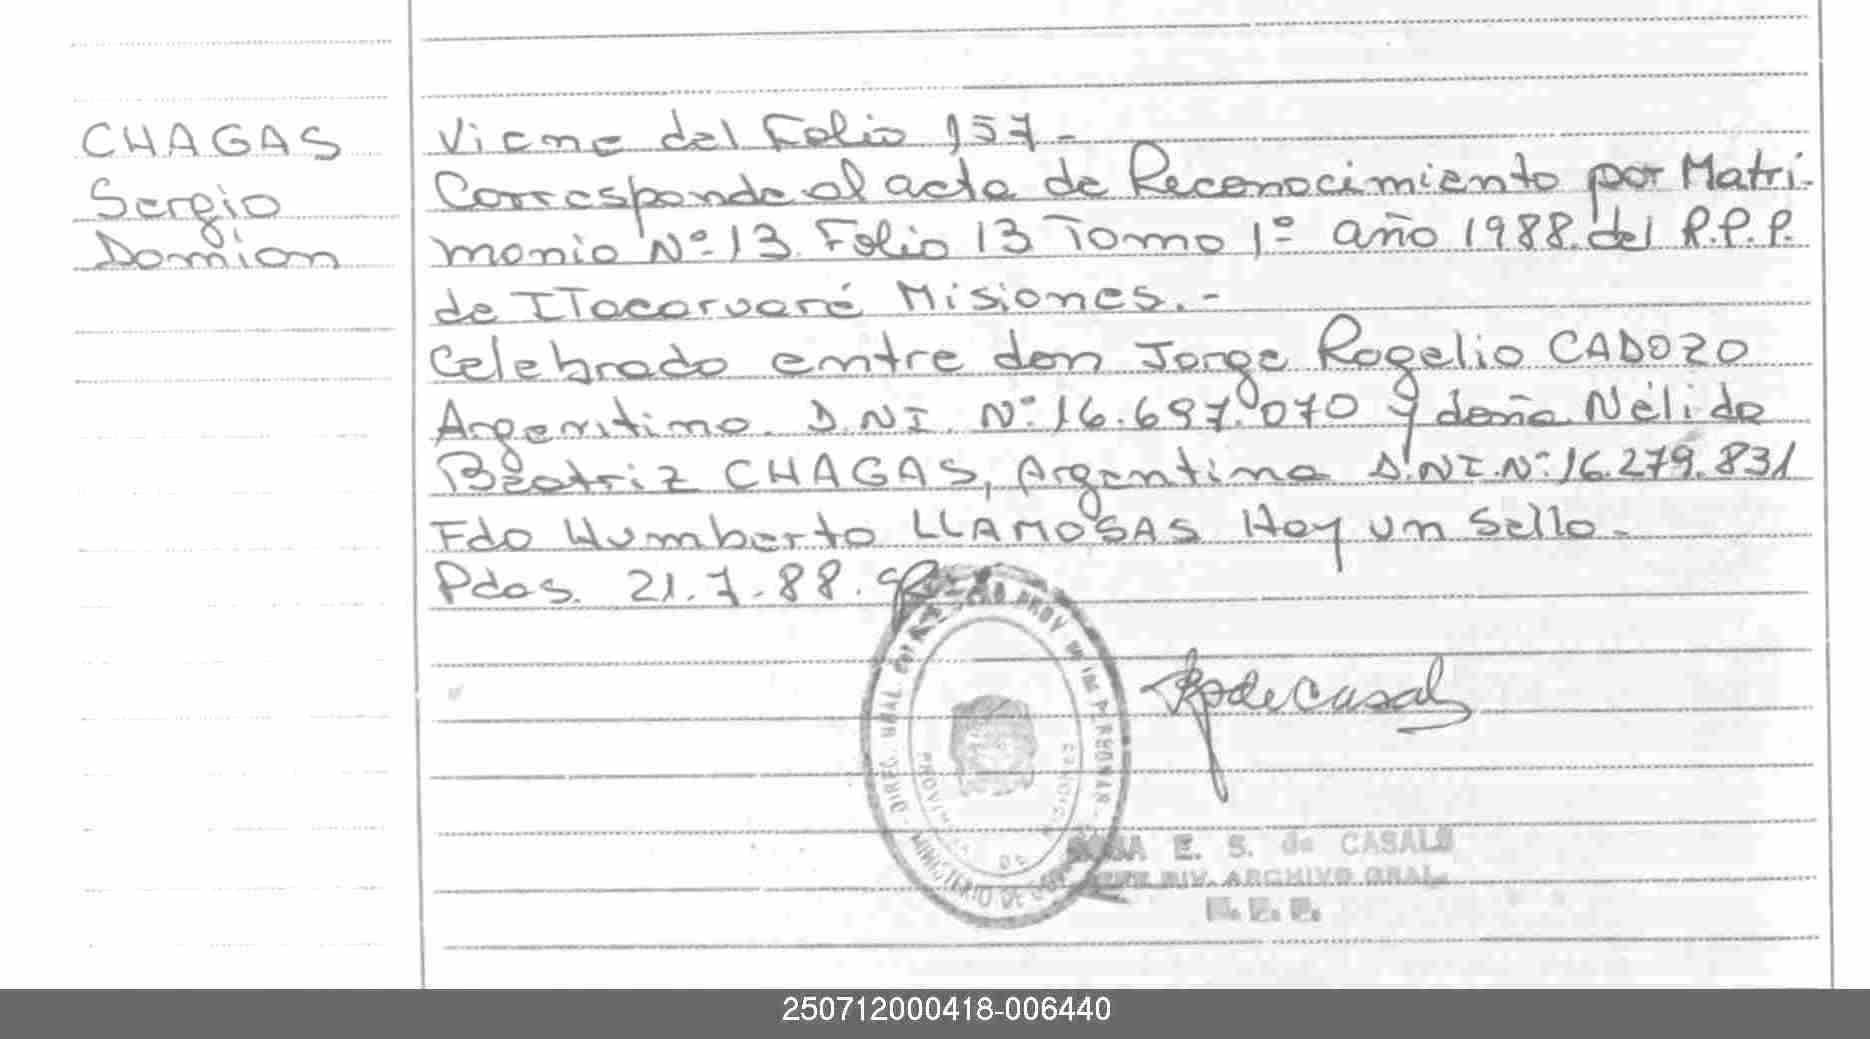 CHAGAS
Sergio
Damian
Viene del Folio 157-
Corresponde al acta de Reconocimiento por Matri-
monio Nº 13. Folio 13 Tomo 1º año 1988. del R.P.P.
de ITacaruaré Misiones.-
Celebrado entre don Jorge Rogelio CADOZO
Argentino. D.NI. Nº 16.697.070 y doña Nélida
Béatriz CHAGAS, Argentina D.NI.Nº 16.279.831
Fdo Humberto LLAMOSAS Hay un Sello.-
Pdas. 21.7.88.
DIREC. GRAL. PROV. DE LAS PERSONAS
PROVINCIA DE MISIONES
MINISTERIO DE
de Casals
E. S. de CASALS
DIV. ARCHIVO GRAL.
250712000418-006440